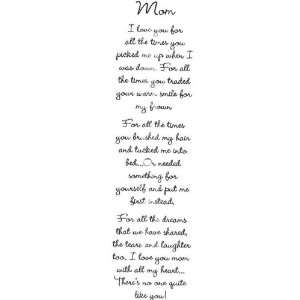 Mom
I love you for
all the times you
picked me up when I
was down. For all
the times you traded
your warm smile for
my frown.
For all the times
you brushed my hair
and tucked me into
bed...Or needed
something for
yourself and put me
first instead.
For all the dreams
that we have shared,
the tears and laughter
too. I love you mom
with all my heart...
There's no one quite
like you!